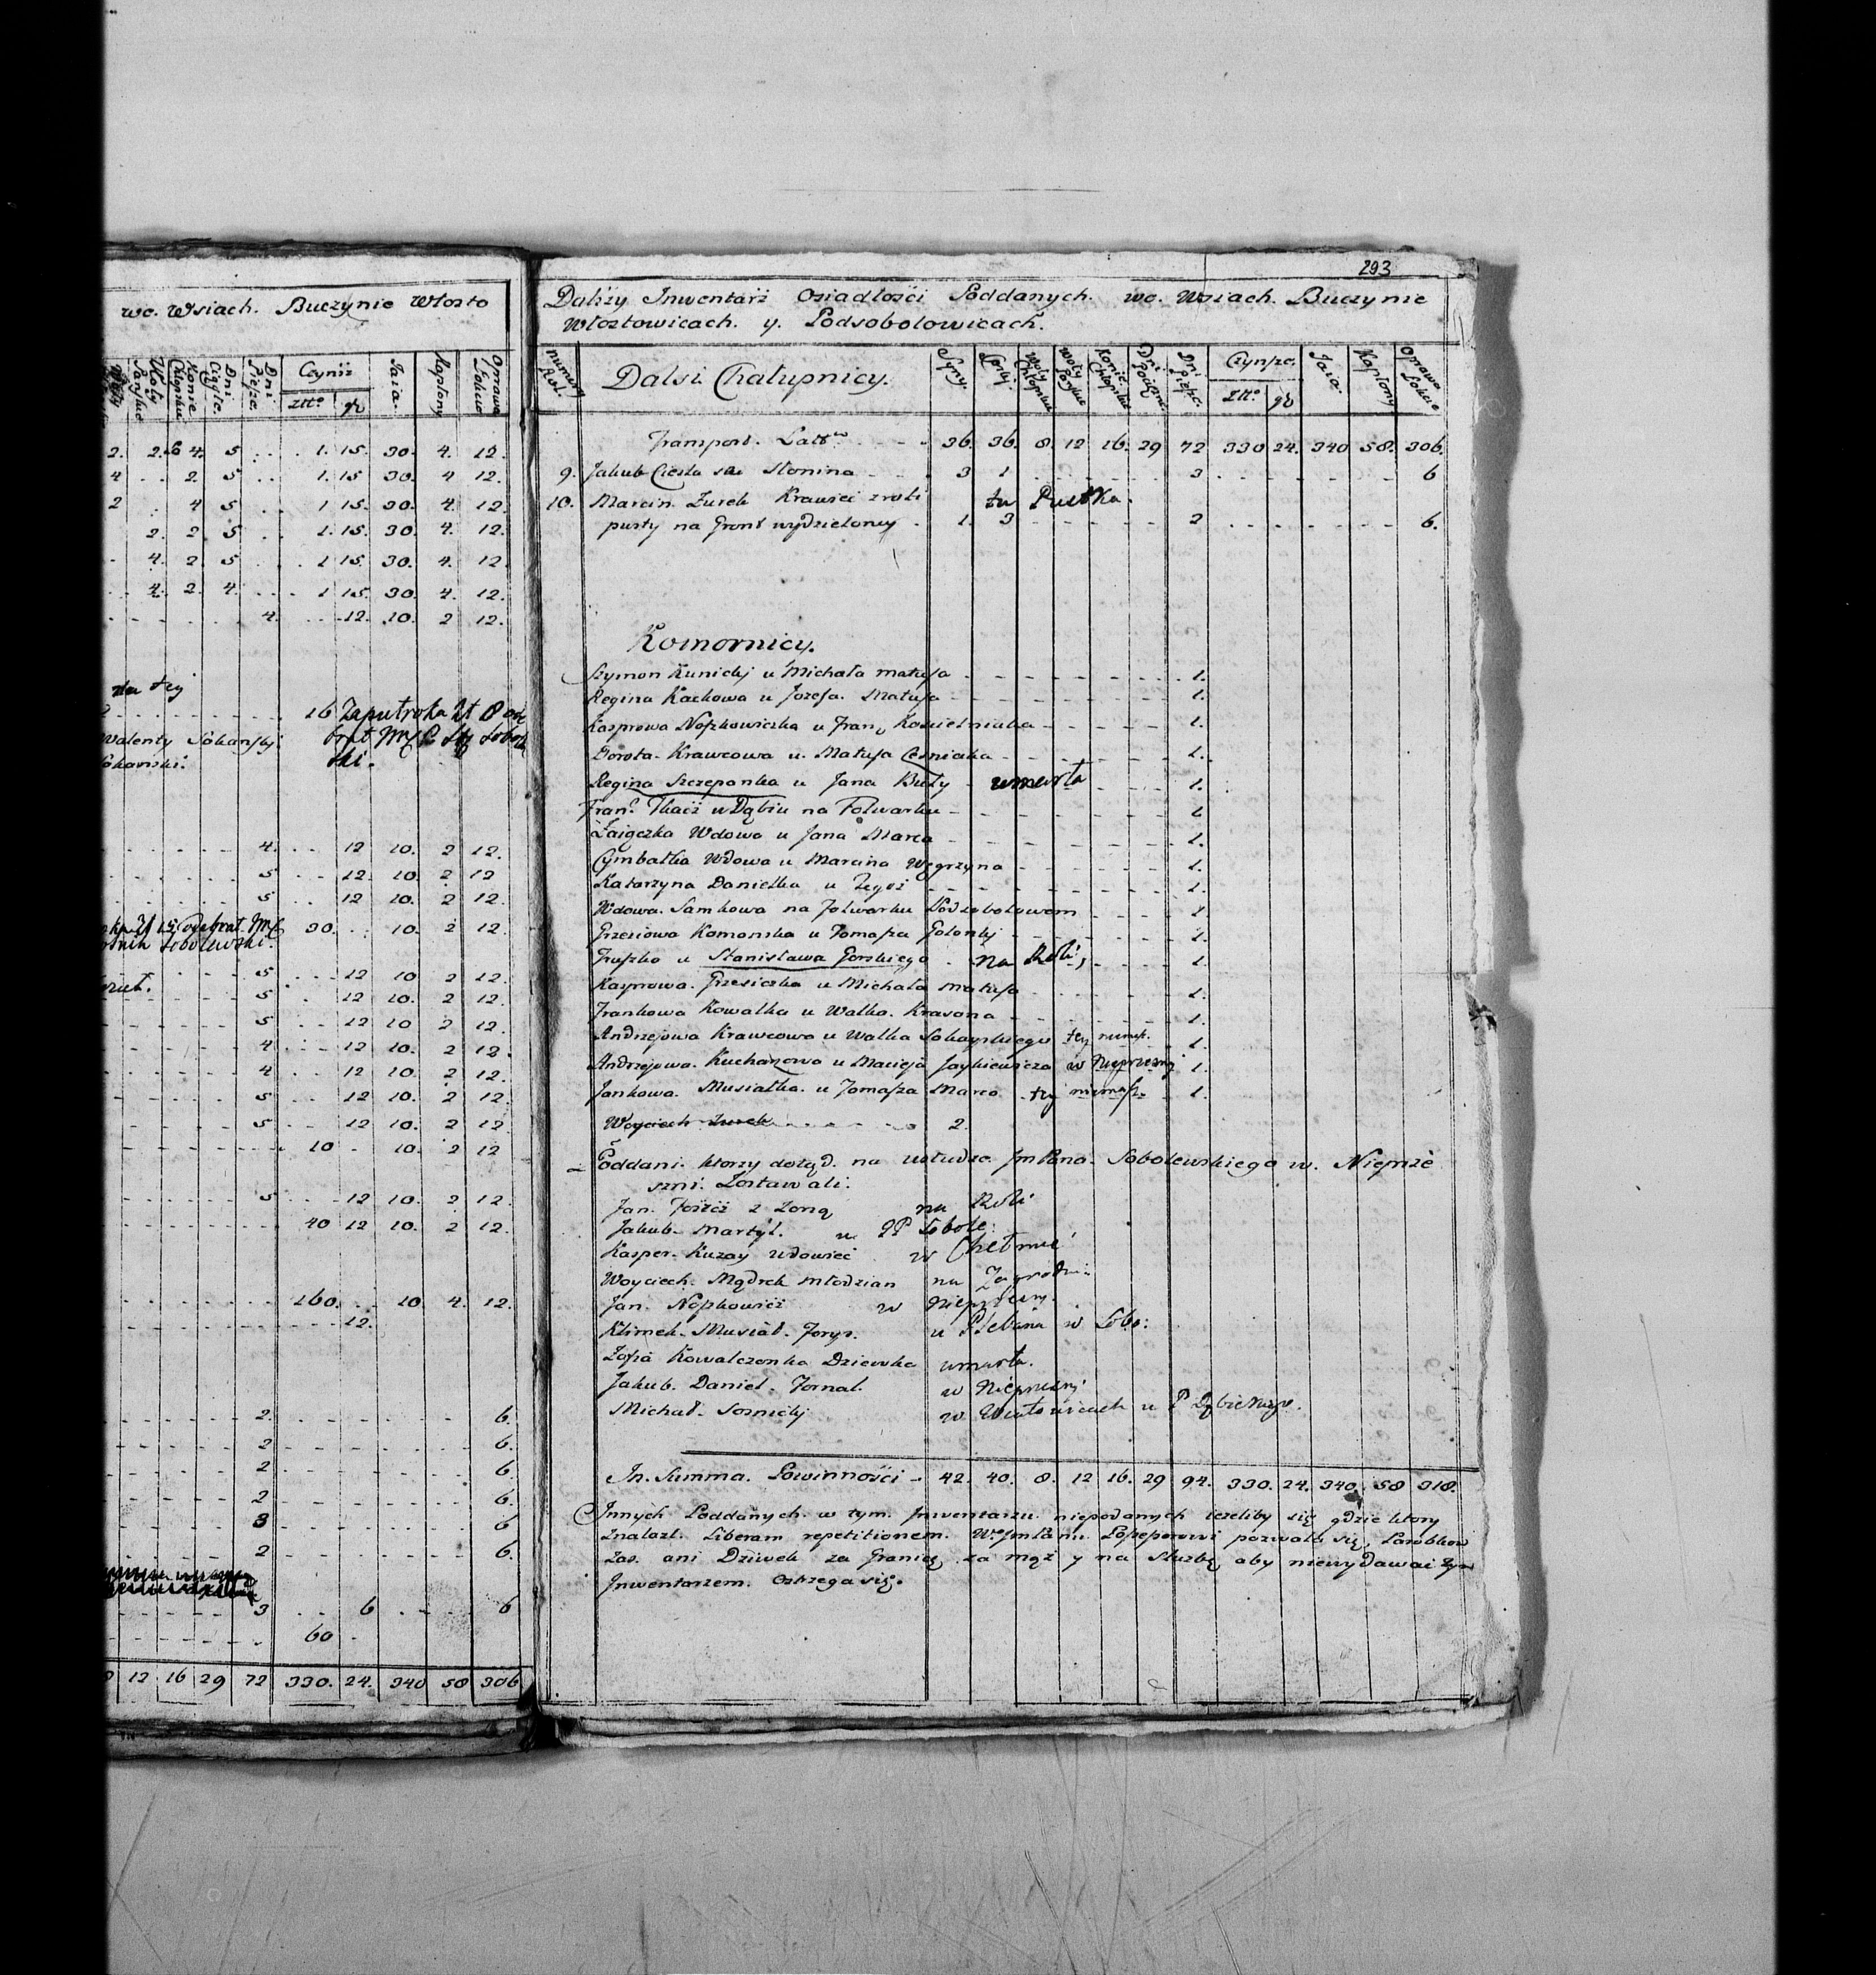 we. Wsiach. Buczynie Włosto
Woły Pańskie
Konie Chłopskie
Dni Ciągłe.
Dni Piesze.
Czynsz
Złł. gr
Jaia.
Kapłony
Oprawa Łokcie
2. 2. 4. 5 . . . 1. 15. 30. 4. 12.
4 . . 2. 5 . . 1. 15 30. 4 12.
2 . 4 5 . . 1 15. 30. 4. 12.
2. 2. 5 . . 1. 15. 30. 4. 12.
4. 2 5 . . . 1 15. 30. 4. 12
4. 2. 4. . . . 1 15. 30. 4. 12.
4. . . 12. 10. 2 12.
16 Zaputroka Zł 8 ode
Walenty Sokański
ski.
4. . . 12 10. 2 12.
5 . . 12. 10. 2 12
5 . . 12 10. 2. 12.
30. . . 10. 2 12.
Sobolewski
5 . . . 12 10 2 12.
5 . . 12 10. 2 12.
5 . . 12 10 2 12.
4 . . 12 10. 2 12.
4 . . 12 10. 2 12.
5 . . 12 10. 2 12.
5 . . 12 10. 2 12.
10 - 10. 2 12
5 . . 12 10. 2 12.
40 12 10. 2 12.
160. . . 10 4. 12.
12.
2. 6.
2 6.
2 6.
2 6.
3 6
2 6.
3 . . 6 . . 6
60
12 16 29 72 330. 24. 340 58 306
293
Dalszy Inwentarz Osiadłości Poddanych. we. Wsiach. Buczynie
Włostowicach. y. Podsobolowicach.
numery Rol.
Dalsi Chałupnicy.
Syny.
Corki.
Woły Chłopskie
Woły Pańskie
Konie Chłopskie
Dni Pociągłe.
Dni Piesze.
Czynsze.
Złł. gr
Jaia.
Kapłony
Oprawa Łokcie
Transport. Lat. 36. 36. 8. 12 16. 29 72 330 24. 340 58. 306.
9. Jakub Ciesla Słonina 3 1 3 6
10. Marcin. Zurek Krawiec z roli tu Pustka.
pusty na Gront wydzielony 1. 3 2 6.
Komornicy.
Szymon Kunicki u Michała matusa 1.
Regina Kackowa u Jozefa. Matusa 1.
Kasprowa Noszkowiczka u Fran. Koscielniaka 1.
Dorota. Krawcowa u. Matusa Cesniaka 1.
Regina Szczeponka u Jana Buły umarła 1.
Fran. Tkacz w Dąbiu na Folwarku 1
Zaiączka Wdowa u Jana Marca 1.
Cymbalka Wdowa u Marcina Węgrzyna 1.
Katarzyna Danielka u Tegoż 1.
Wdowa. Samkowa na folwarku Podsobolowem 1
Grzesiowa Komorska u Tomasza Golonki 1.
Gruszko u Stanisława Gorskiego na Roli, 1.
Kasprowa. Grzesiczka u Michała matusa 1.
Frankowa Kowalka u Walka. Krasona 1.
Andrzejowa Krawcowa u Walka Sokayskiego tey nimasz. 1.
Andrzejowa. Kucharzowa u Macieja Jaskiewicza w Nieprzesni 1.
Jankowa. Musiałka. u Tomasza Marca tey niemasz. 1.
Woyciech Zurek 2.
Poddani. ktorzy dotąd. na usłudze. Jm Pana. Sobolewskiego w. Nieprze
szni. Zostawali.
Jan. z Zoną na Roli
Jakub. Martyl. u PP Sobole:
Kasper. Kuzay wdowiec w Chełmie
Woyciech. Mądrek młodzian na Zagrodzie
Jan. Noszkowicz w Nieprzesni.
Klimek. Musiał. Foryś. u Plebana w Sobo:
Zofia Kowalczonka Dziewka umarła.
Jakub. Daniel. Fornal. w Nieprzesni
Michał. Sosnicki w Wiatowicach u P Dąbieckiego.
In. Summa. Powinności 42. 40. 8. 12 16. 29 94. 330. 24. 340 58 318.
Innych Poddanych. w tym. Inwentarzu. niepodanych ieżeliby się gdzie ktory
znalazł. Liberam repetitionem. W. Jm Panu. Possesorowi pozwala się, Parobkow
zas. ani Dziwek za Granicę za mąż y na służbę aby niewydawał tym
Inwentarzem. ostrzega się.